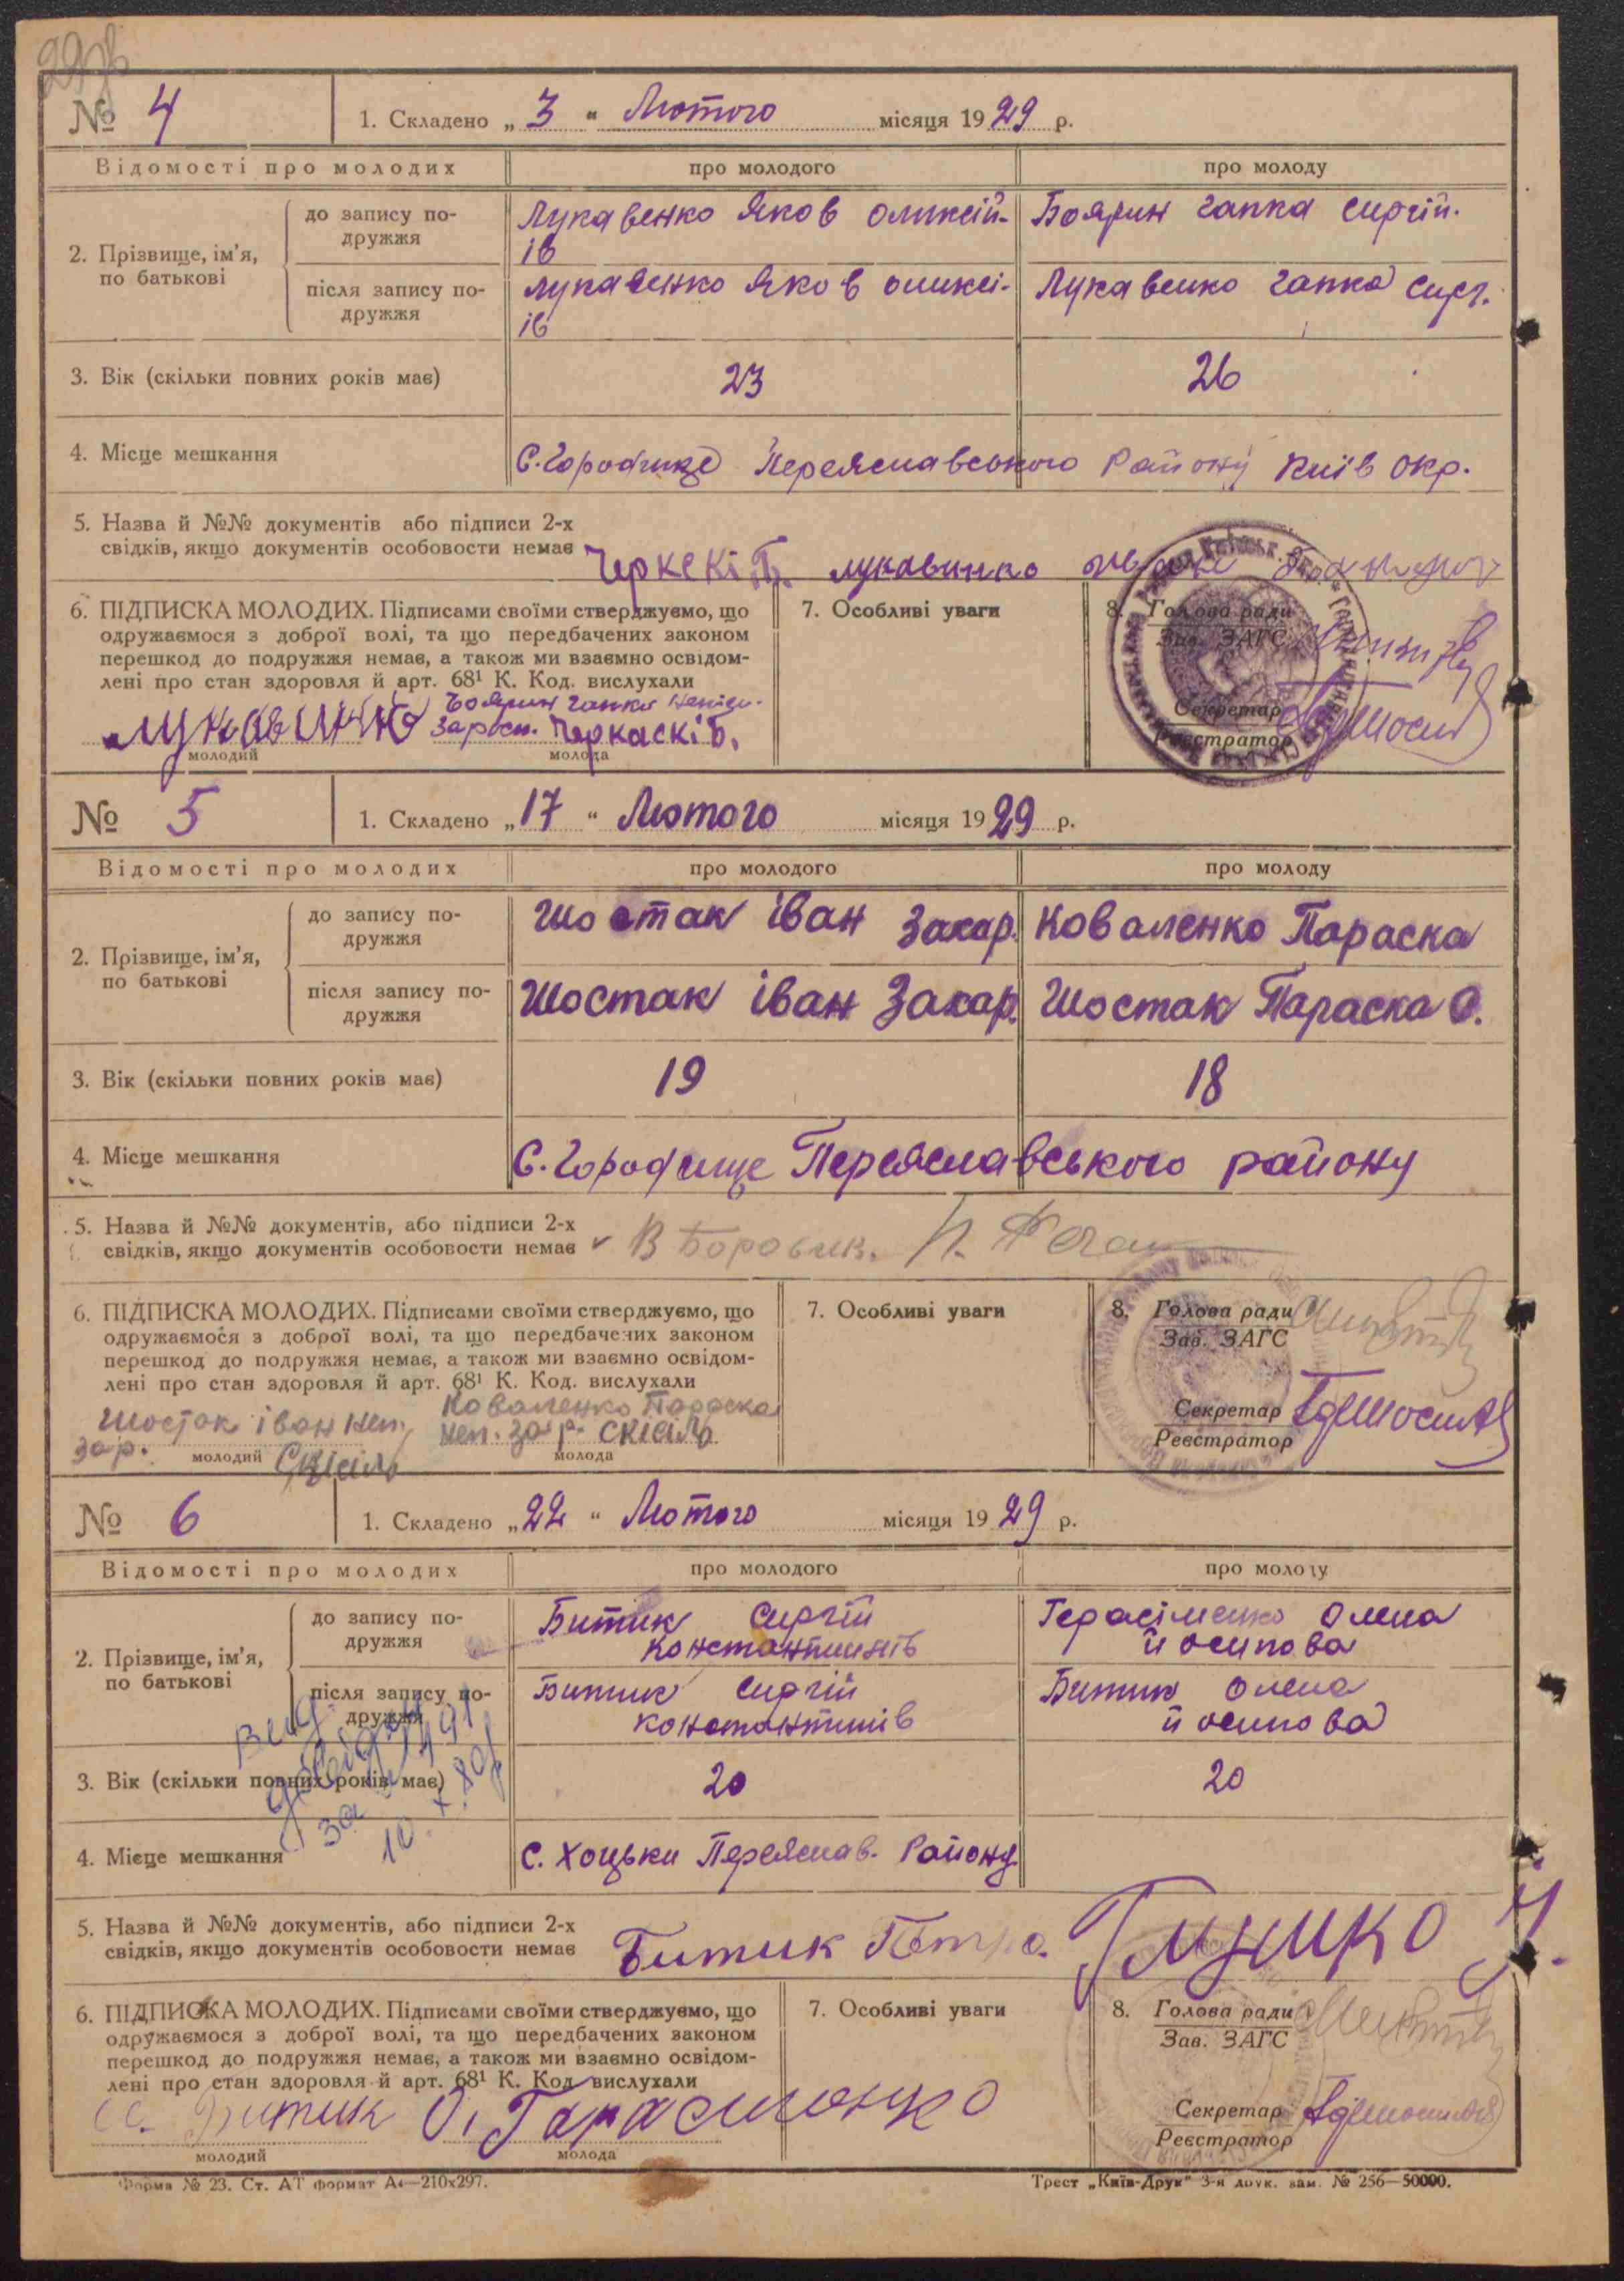 29зв
№ 4 1. Складено „ 3 " Лютого місяця 1929 р.
Відомості про молодих про молодого про молоду
2. Прізвище, ім'я, по батькові
до запису подружжя
Лукавенко Яков оликсій-ів
Боярин гапка сиргій.
після запису подружжя
Лукавенко Яков оликсі-ів
Лукавенко гапка сирг.
3. Вік (скільки повних років має) 23 26
4. Місце мешкання С. Городище Переяславського Району Київ окр.
5. Назва й №№ документів або підписи 2-х
свідків, якщо документів особовости немає Черкскі П. лукавинко
6. ПІДПИСКА МОЛОДИХ. Підписами своїми стверджуємо, що
одружаємося з доброї волі, та що передбачених законом
перешкод до подружжя немає, а також ми взаємно освідом-
лені про стан здоровля й арт. 68¹ К. Код. вислухали
Боярин гапка
Черкаскі
молодий молода
7. Особливі уваги
8. Голова ради
Зав. ЗАГС
Секретар
Реєстратор
№ 5 1. Складено „ 17 " Лютого місяця 1929 р.
Відомості про молодих про молодого про молоду
2. Прізвище, ім'я, по батькові
до запису подружжя
Шостак іван Захар.
Коваленко Параска
після запису подружжя
Шостак іван Захар.
Шостак Параска О.
3. Вік (скільки повних років має) 19 18
4. Місце мешкання С. Городище Переяславського району
5. Назва й №№ документів, або підписи 2-х
свідків, якщо документів особовости немає В Боровик.
6. ПІДПИСКА МОЛОДИХ. Підписами своїми стверджуємо, що
одружаємося з доброї волі, та що передбачених законом
перешкод до подружжя немає, а також ми взаємно освідом-
лені про стан здоровля й арт. 68¹ К. Код. вислухали
Шостак іван неп. зар.
Коваленко Параска
неп. зар.
молодий молода
7. Особливі уваги
8. Голова ради
Зав. ЗАГС
Секретар
Реєстратор
№ 6 1. Складено „ 22 " Лютого місяця 1929 р.
Відомості про молодих про молодого про молоду
2. Прізвище, ім'я, по батькові
до запису подружжя
Битик сиргій
константинів
Герасіменко Олена
йосипова
після запису подружжя
Битик сиргій
константинів
Битик Олена
йосипова
3. Вік (скільки повних років має) 20 20
4. Місце мешкання С. Хоцьки Переяслав. Району
5. Назва й №№ документів, або підписи 2-х
свідків, якщо документів особовости немає Битик Петро. Глушко
6. ПІДПИСКА МОЛОДИХ. Підписами своїми стверджуємо, що
одружаємося з доброї волі, та що передбачених законом
перешкод до подружжя немає, а також ми взаємно освідом-
лені про стан здоровля й арт. 68¹ К. Код. вислухали
С. Битик О. Гарасименко
молодий молода
7. Особливі уваги
8. Голова ради
Зав. ЗАГС
Секретар
Реєстратор
Форма № 23. Ст. АТ формат А4—210x297. Трест „Київ-Друк" 3-я друк. зам. № 256—50000.